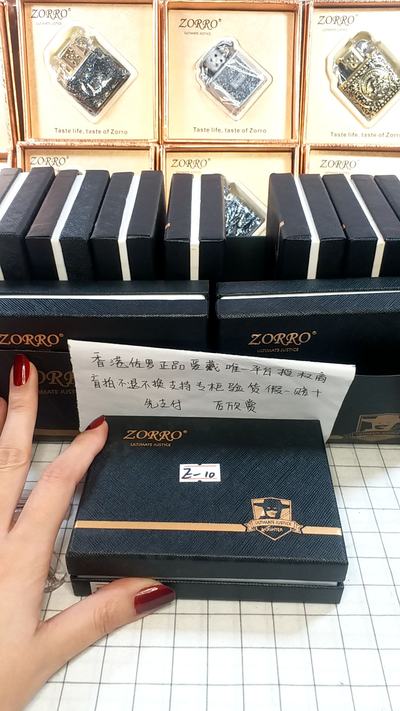 ZORRO®
ULTIMATE JUSTICE
Taste life, taste of Zorro
ZORRO®
ULTIMATE JUSTICE
Taste life, taste of Zorro
ZORRO®
Taste life, taste of Zorro
ZORRO®
ZORRO®
ZORRO®
ZORRO®
ULTIMATE JUSTICE
ZORRO®
ULTIMATE JUSTICE
香港佐罗正品爱戴唯一平台授权商
盲拍不退不换支持专柜验货假一赔十
先支付 后欣赏
ZORRO®
ULTIMATE JUSTICE
Z-10
ULTIMATE JUSTICE